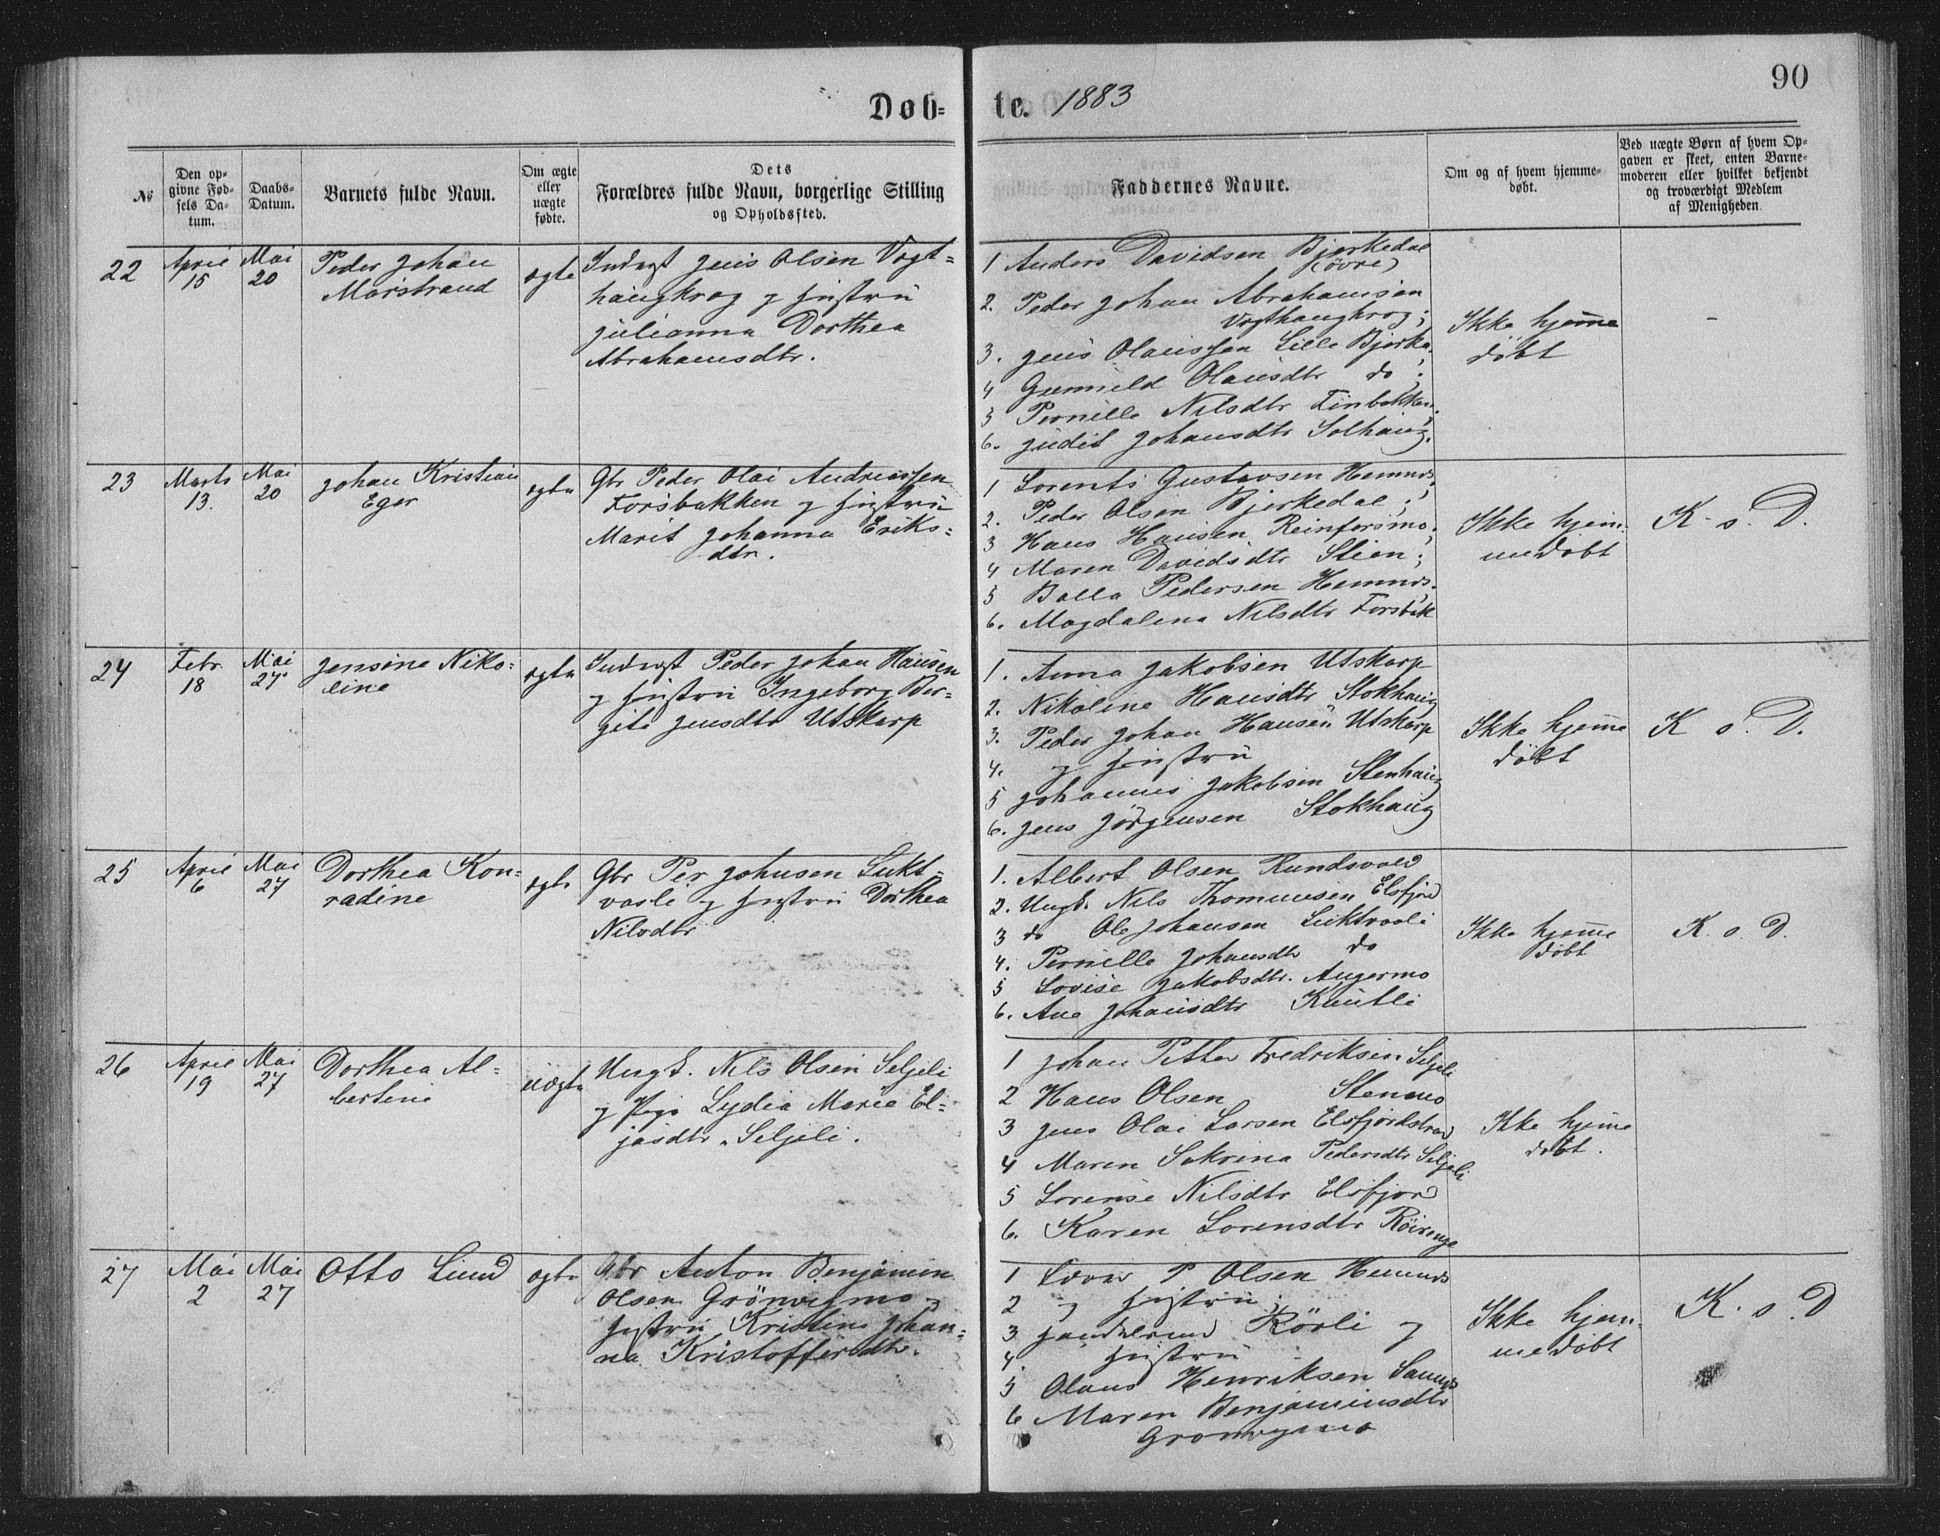 90
Døb= te. 1883
№
Den op-
givne Fød-
sels Da-
tum.
Daabs-
Datum.
Barnets fulde Navn.
Om ægte
eller
uægte
fødte.
Dets
Forældres fulde Navn, borgerlige Stilling
og Opholdssted.
Faddernes Navne.
Om og af hvem hjemme-
døbt.
Ved uægte Børn af hvem Op-
gaven er skeet, enten Barne-
moderen eller hvilket bekjendt
og troværdigt Medlem
af Menigheden.
22
April
15
Mai
20
Peder Johan
Marstrand
ægte
Inderst Jens Olsen Vogt=
haugkrog og hustru
Julianna Dorthea
Abrahamsdtr.
1 Anders Davidsen Bjerkedal
(övre)
2. Peder Johan Abrahamsen
Vogthaugkrog;
3. Jens Olaussen Lille Bjerka;
4 Gunnild Olausdtr do;
5 Pernille Nilsdtr Finbakken;
6. Judit Johansdtr Solhaug.
Ikke hjem̄e
døbt
-
23
Marts
13.
Mai
20
Johan Kristian
Eger
ægte
Gbr Peder Olai Andreassen
Forsbakken og hustru
Marit Johanna Eriks=
dtr.
1 Lorents Gustavsen Hemnes;
2. Peder Olsen Bjerkedal;
3 Hans Hansen Reinforsmo;
4 Maren Davidsdtr Stien;
5 Balla Pedersen Hemnes.
6. Magdalena Nilsdtr Forsbak
Ikke hjem-
medøbt
K. s. D.
24
Febr.
18
Mai
27
Jensine Niko=
line
ægte
Inderst Peder Johan Hansen
og hustru Ingeborg Ber-
gite Jensdtr Utskarp
1. Anna Jakobsen Utskarp
2. Nikoline Hansdtr Stokhaug
3. Peder Johan Hansen Utskarp
4. og hustru
5 Johannes Jakobsen Stenhaug
6. Jens Jörgensen Stokhaug
Ikke hjem̄e
døbt
K s. D.
25
April
6
Mai
27
Dorthea Kon-
radine
ægte
Gbr Per Johnsen Lukt-
vasli og hustru Dorthea
Nilsdtr
1. Albert Olsen Rundsvold
2. Ungk. Nils Thommesen Elsfjord
3 do Ole Johansen Luktvasli
4. Pernille Johansdtr do
5 Lovise Jakobsdtr. Angermo
6. Ane Johansdtr Knutli
Ikke hjem̄e
døbt
K. s. D.
26
April
19
Mai
27
Dorthea Al-
bertine
uægte
Ungk. Nils Olsen Seljeli
og Pige Lydia Marie El-
jasdtr. Seljeli.
1 Johan Petter Fredriksen Seljeli
2 Hans Olsen Stenmo
3 Jens Olai Larsen Elsfjordstrand
4 Maren Sakrina Pedersdtr Seljeli
5 Lorense Nilsdtr Elsfjord
6. Karen Lorensdtr
Ikke hjem̄e
døbt.
27
Mai
2
Mai
27
Otto Lund
ægte
Gbr Anton Benjamin
Olsen Grönvigmo og
hustru Kristine Johan-
na Kristoffersdtr.
1 P. Olsen Hemnes
2 og hustru;
3 Rörli og
4 hustru
5 Olaus Henriksen
6 Maren Benjaminsdtr
Gronvigmo
Ikke hjem-
medøbt
K. s. D